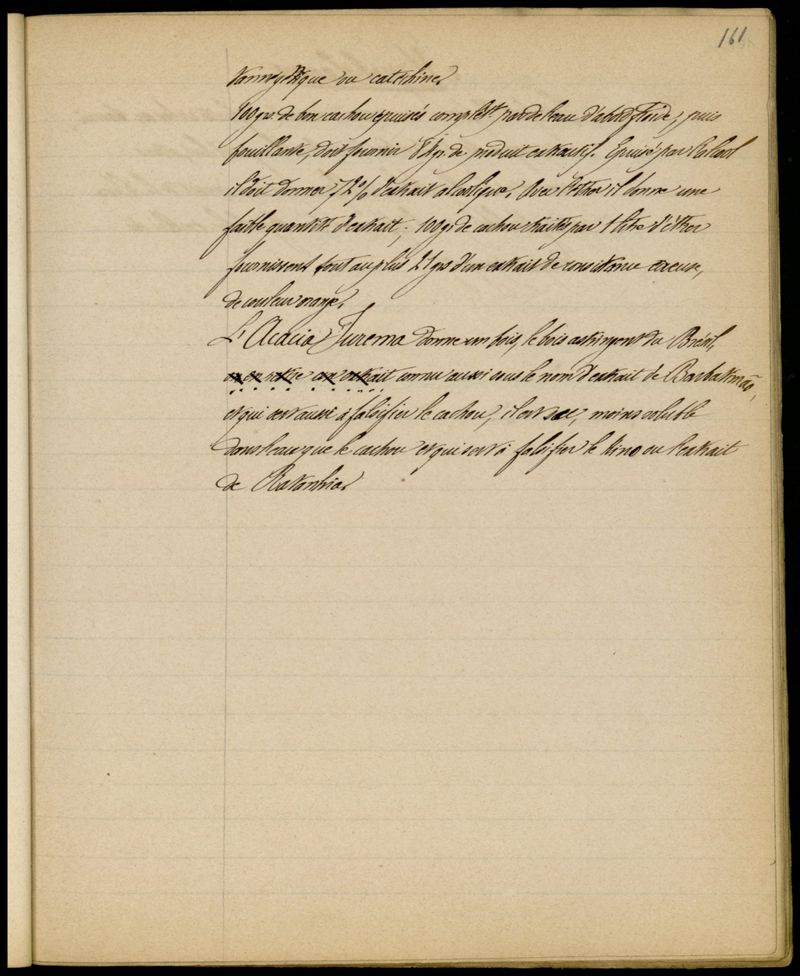 161
ou catéchine.
100 gr. de bon cachou épuisés complètt par de l'eau d'abord froide, puis
bouillante, doit fournir 84 gr. de produit extractif. Epuisé par l'alcool
il doit donner 72% d'extrait alcoolique. Avec l'éther il donne une
faible quantité d'extrait; 100 gr. de cachou traités par 1 litre d'éther
fournissent tout au plus 21 gr. d'un extrait de consistance cireuse,
de couleur orange.
L'Acacia Jurema donne un bois, le bois astringent du Brésil,
on en retire un extrait connu aussi sous le nom d'extrait de
et qui sert aussi à falsifier le cachou, il est sec, moins soluble
dans l'eau que le cachou et qui sert à falsifier le kino ou l'extrait
de Ratanhia.